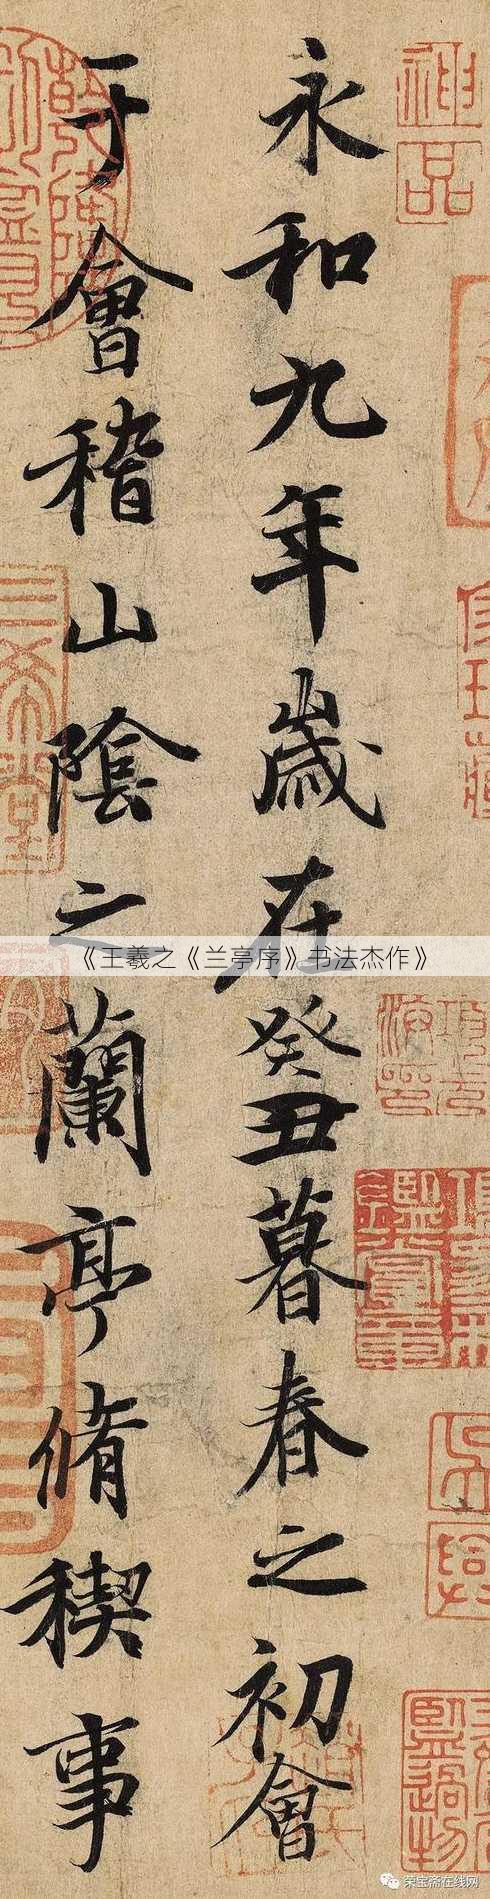 神品
永和九年歲在癸丑暮春之初會
于會稽山陰之蘭亭脩稧事
《王羲之《兰亭序》书法杰作》
荣宝斋在线网